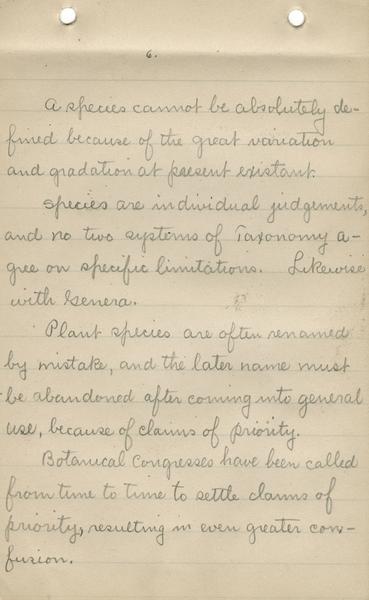 6.
A species cannot be absolutely de-
fined because of the great variation
and gradation at present existant.
Species are individual judgements,
and no two systems of Taxonomy a-
gree on specific limitations. Likewise
with Genera.
Plant species are often renamed
by mistake, and the later name must
be abandoned after coming into general
use, because of claims of priority.
Botanical Congresses have been called
from time to time to settle claims of
priority, resulting in even greater con-
fusion.